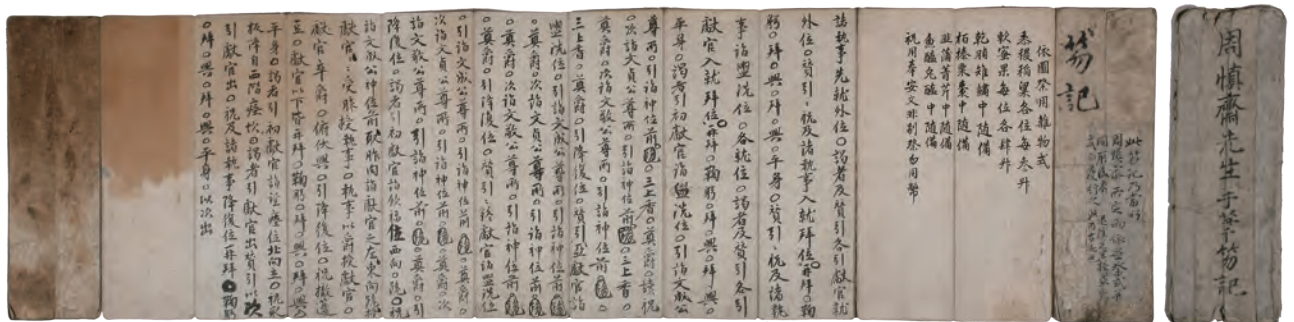 周愼齋先生手筆笏記
笏記
依圖祭用雜物式
黍稷稻粱各位每叁升
軟宻果每位各肆升
乾脯雉鱐中隨備
栢榛栗棗中隨備
韮蒲菁芹中隨備
魚醢兎醢中隨備
祝用奉安文非別祭勿用幣
諸執事先就外位○謁者及贊引各引獻官就
外位○贊引引祝及諸執事入就拜位○再拜○鞠
躬○拜○興○拜○興○平身○贊引引祝及諸執
事詣盥洗位○各就位○謁者及贊引各引
獻官入就拜位○再拜○鞠躬○拜○興○拜○興○
平身○謁者引初獻官詣盥洗位○引詣文成公
尊所○引詣神位前○跪○三上香○奠爵○讀祝
○次詣文貞公尊所○引詣神位前○跪○三上香○
奠爵○次詣文敬公尊所○引詣神位前○跪○
三上香○奠爵○引降復位○贊引引亞獻官詣
盥洗位○引詣文成公尊所○引詣神位前○跪
○奠爵○次詣文貞公尊所○引詣神位前○跪
○奠爵○次詣文敬公尊所○引詣神位前○跪
○奠爵○引降復位○贊引引終獻官詣盥洗位
○引詣文成公尊所○引詣神位前○跪○奠爵○
次詣文貞公尊所○引詣神位前○跪○奠爵○次
詣文敬公尊所○引詣神位前○跪○奠爵○引
降復位○謁者引初獻官詣飮福位西向○跪○祝
詣文成公神位前取胙肉詣獻官之左東向跪授
獻官○受胙授執事○執事以爵授獻官○
獻官卒爵○俯伏興○引降復位○祝撤籩
豆○獻官以下皆再拜○鞠躬○拜○興○拜○興○
平身○謁者引初獻官詣望瘞位北向立○祝取
板降自西階瘞坎○謁者引獻官出贊引以次
引獻官出○祝及諸執事降復位再拜○鞠躬
○拜○興○拜○興○平身○以次出